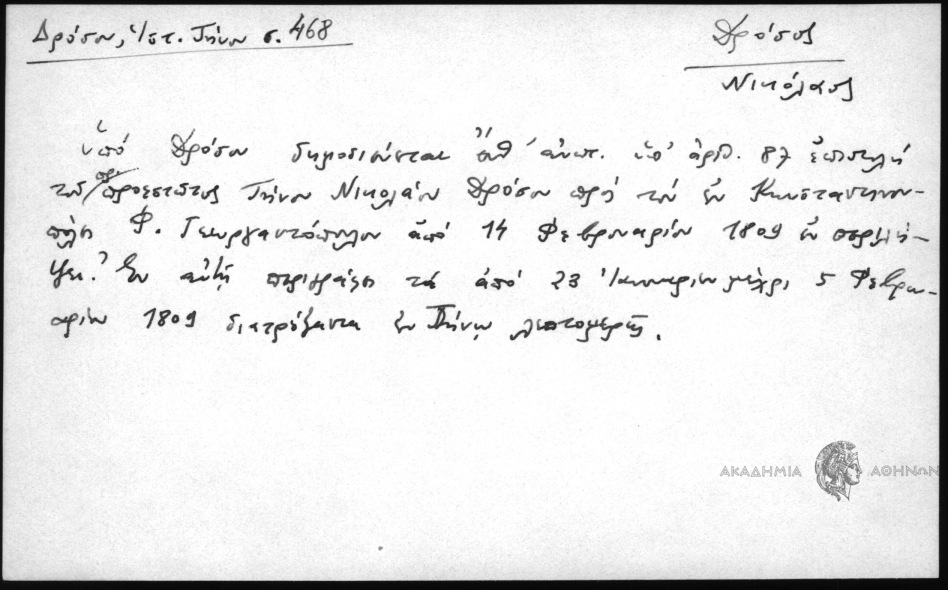 Δρόσου, Ἱστ. Τήνου σ. 468
Δρόσος
Νικόλαος
ὑπό Δρόσου δημοσιεύεται ἀνωτ. ὑπ' ἀριθ. 87 ἐπιστολή
τοῦ προεστῶτος Τήνου Νικολάου Δρόσου πρός τόν ἐν Κωνσταντινου-
πόλει Φ. Γεωργαντόπουλον ἀπό 14 Φεβρουαρίου 1809 ἐν περιλή-
ψει. Ἐν αὐτῇ περιγράφει τά ἀπό 23 Ἰανουαρίου μέχρι 5 Φεβρου-
αρίου 1809 διατρέξαντα ἐν Τήνῳ λεπτομερῶς.
ΑΚΑΔΗΜΙΑ ΑΘΗΝΩΝ